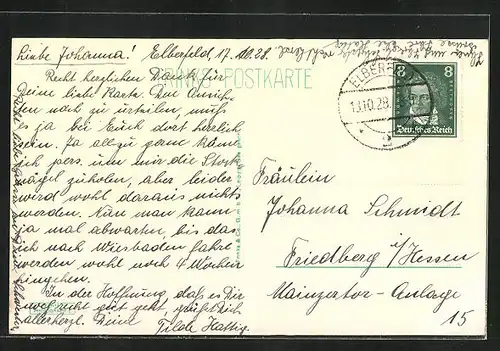 Liebe Johanna! Elberfeld, 17.10.28.
POSTKARTE
Recht herzlichen Dank für
Deine liebe Karte. Den Ansich-
ten nach zu urteilen, muß
es ja bei Euch dort herrlich
sein. Ja allzu gerne käme
ich pers. um mir die Stock-
nägel zu holen, aber leider
wird wohl daraus nichts
werden. Nun man kann
ja mal abwarten bis daß
ich nach Wiesbaden fahre
werden wohl noch 4 Wochen
hingehen.
In der Hoffnung, daß es Dir
recht gut geht, grüßt Dich
allerherzl. Deine Tilde Hattig.
ELBERFELD
18.10.28.
8 8
Deutsches Reich
Fräulein
Johanna Schmidt
Friedberg i/Hessen
Mainzertor-Anlage
15